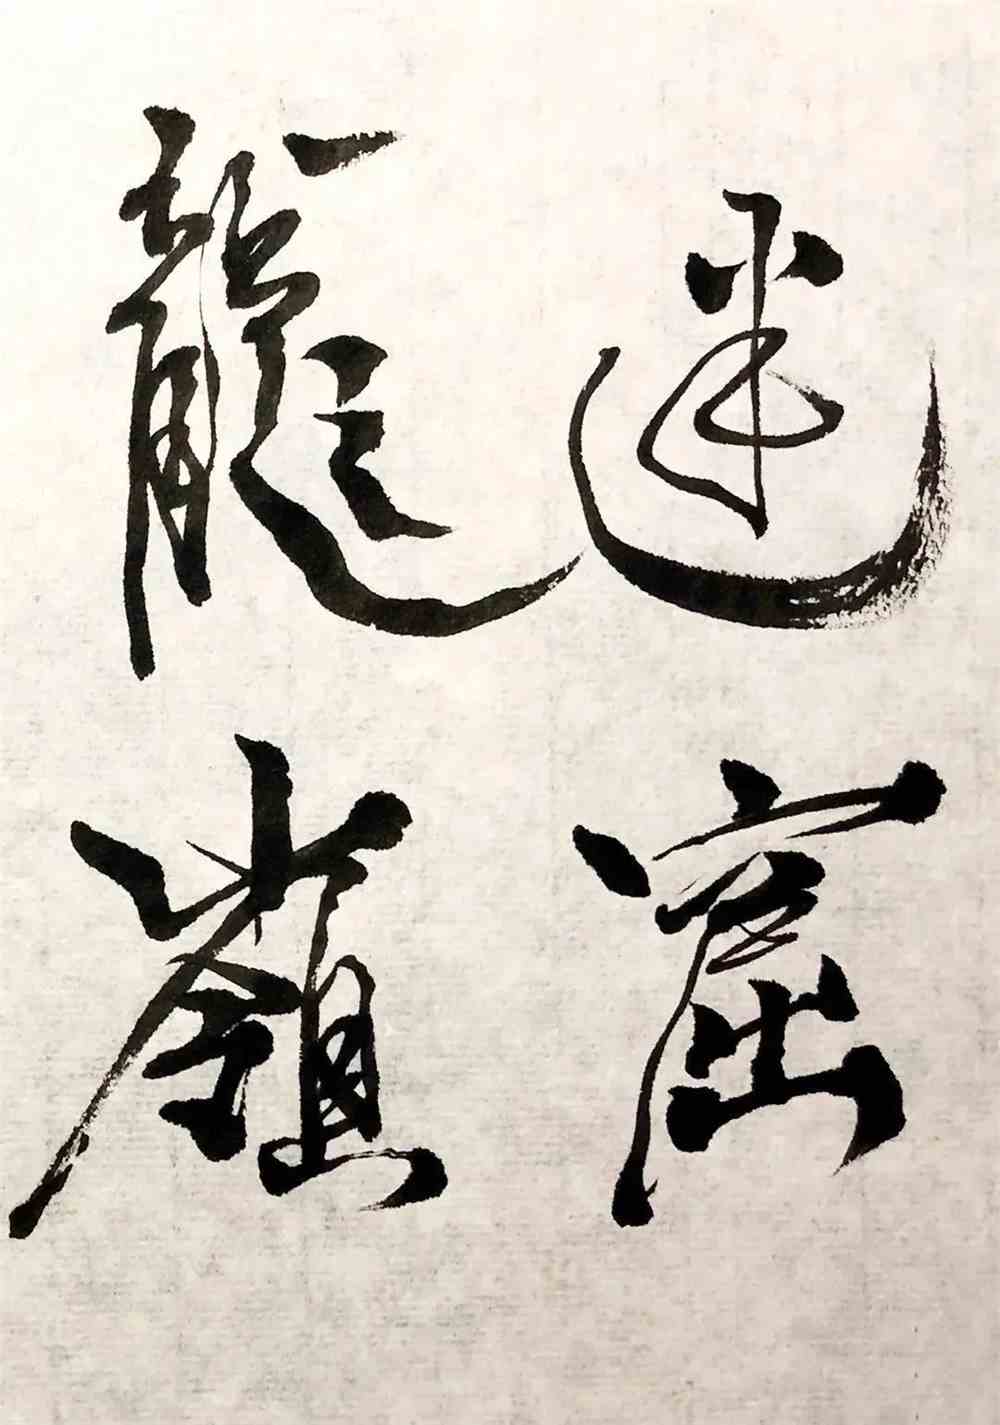 龍嶺
迷窟